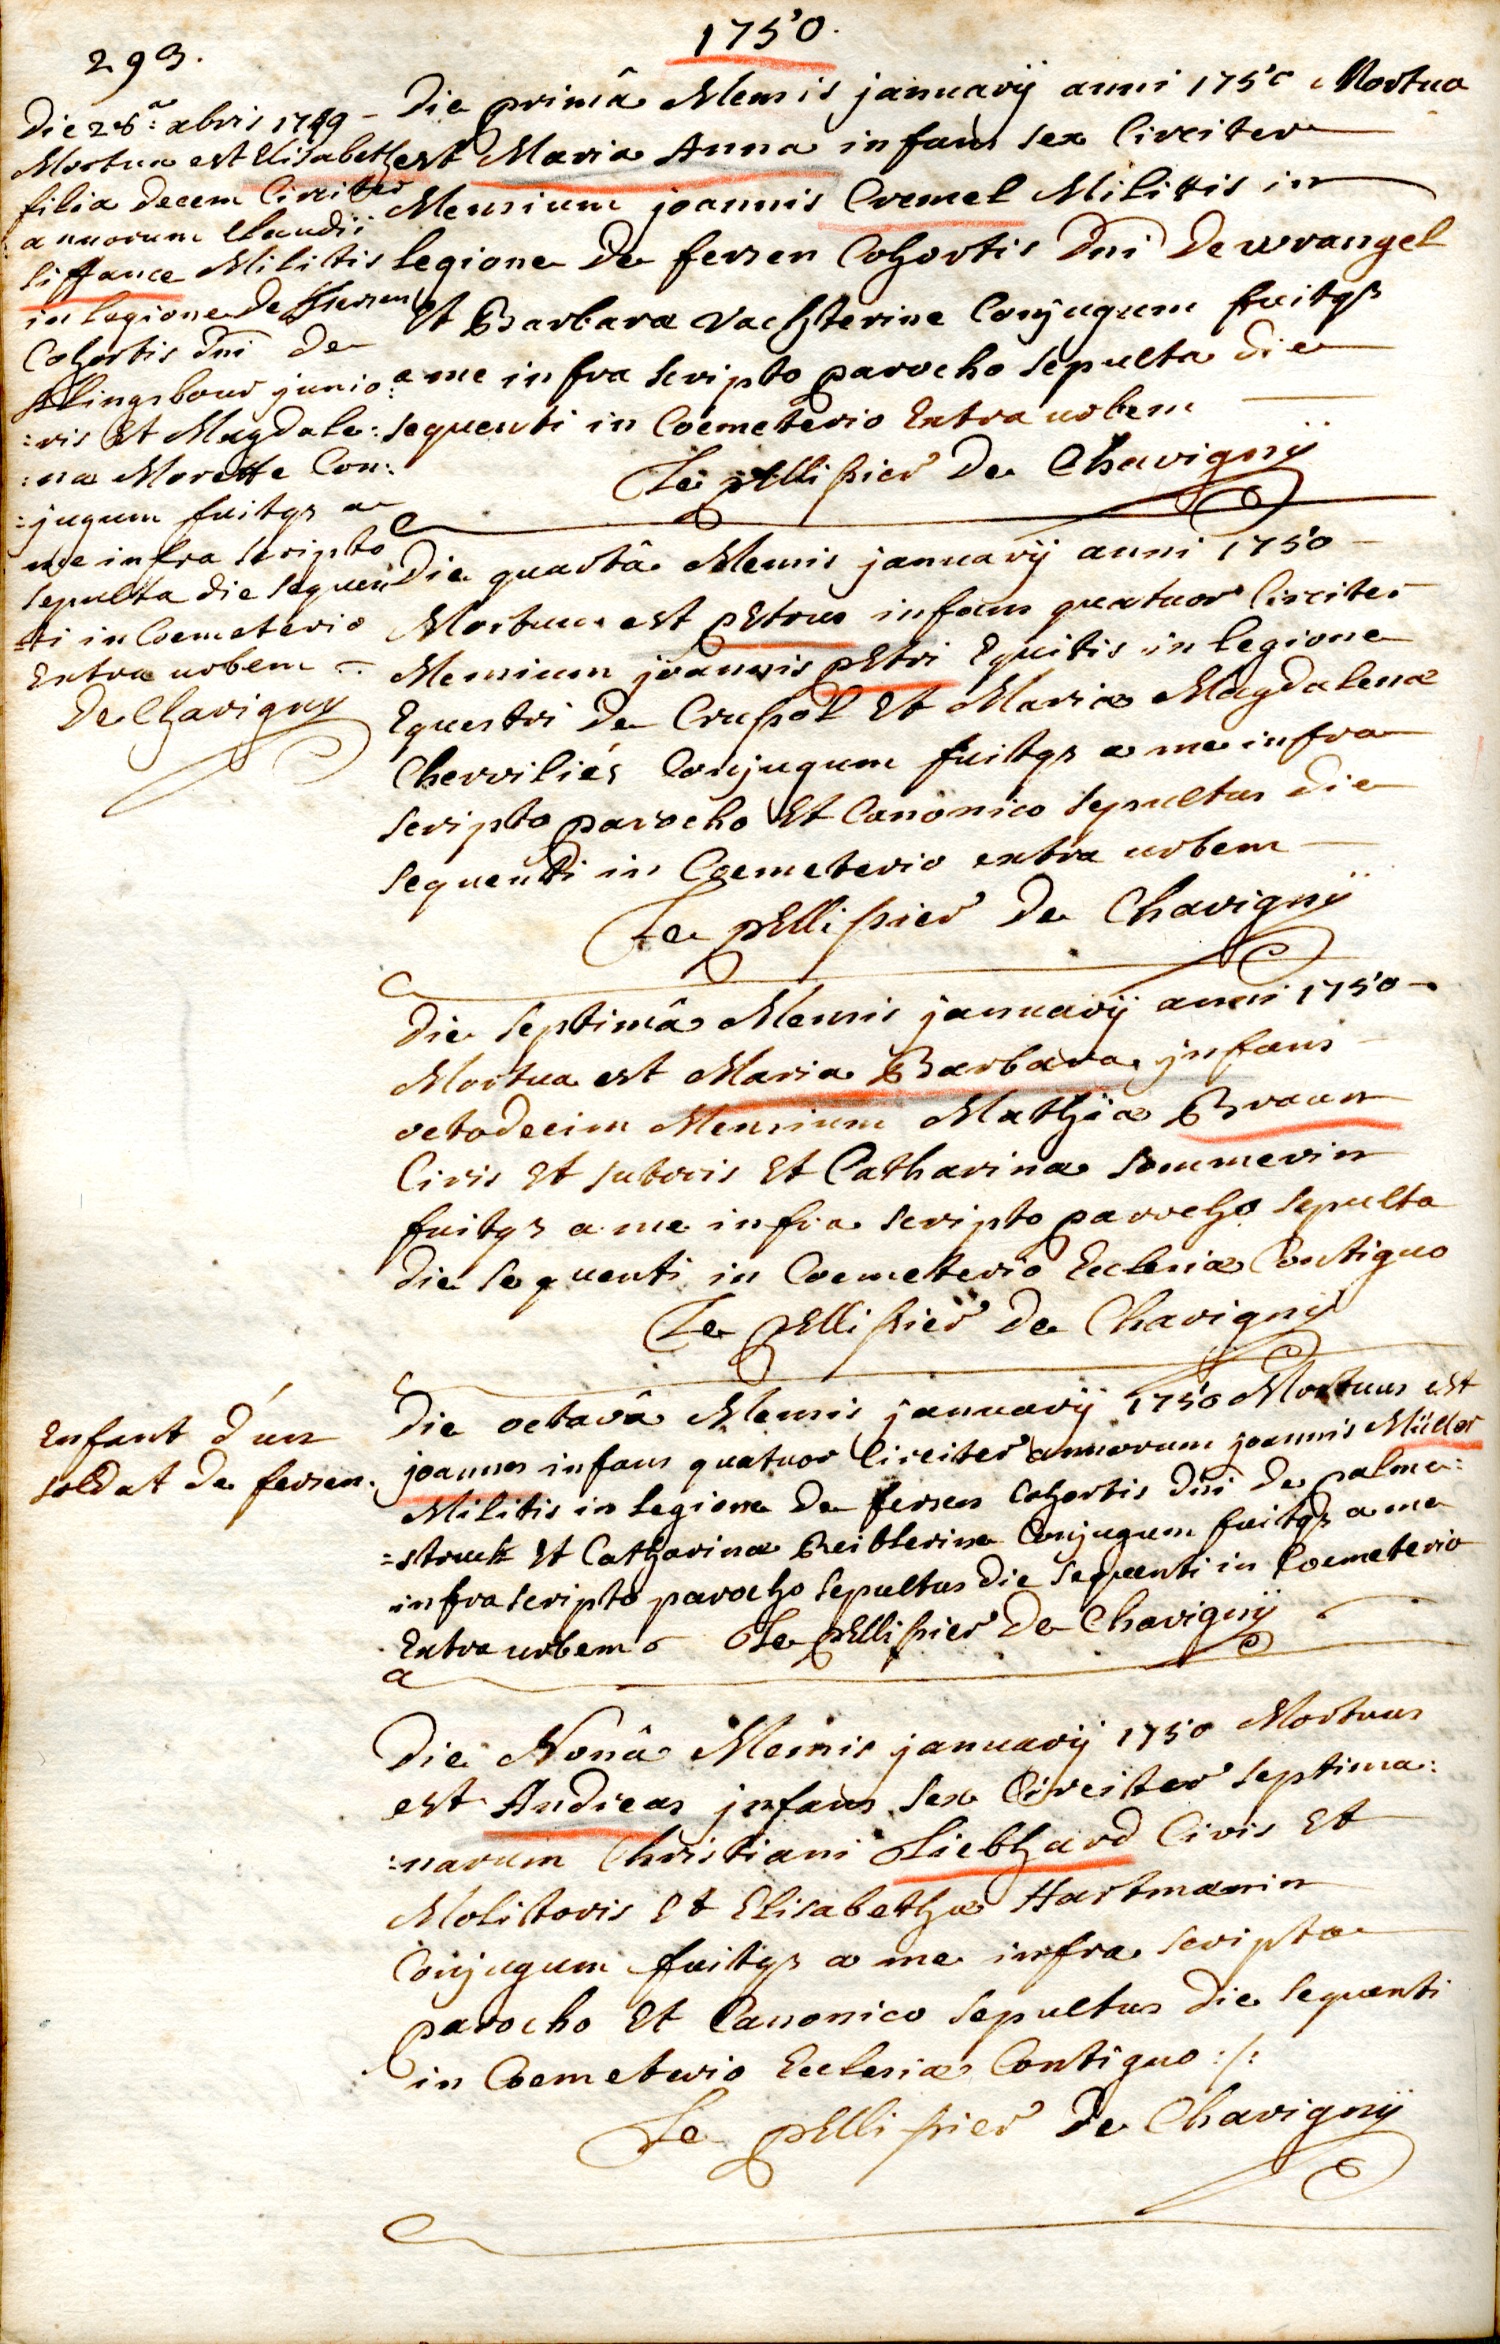 293.
1750.
Die 28a: xbris 1749 –
Mortua est Elisabeth
filia decem Circiter
annorum Claudii
Liffance Militis
in legione de fersen
Cohortis Dni de
Klingsbour junio:
:ris Et Magdale:
:na Morette Con:
:jugum fuitqs a
me infra scripto
sepulta die sequen
:ti in Coemeterio
Extra urbem –
De Chavigny
Die primâ Mensis januarij anni 1750 Mortua
est Maria Anna infans sex Circiter
Mensium joannis Cremel Militis in
legione De fersen Cohortis Dni De wrangel
Et Barbara Vachterine Conjugum fuitqs
a me infra scripto parocho sepulta die
sequenti in Coemeterio Extra urbem
Le pEllissier De Chavignij
Die quartâ Mensis januarij anni 1750 –
Mortuus est pEtrus infans quatuor Circiter
Mensium joannis pEtri Equitis in legione
Equestri De Crussol Et Maria Magdalena
Cherviliés Conjugum fuitqs a me infra
scripto parocho Et Canonico sepultus die
sequenti in Coemeterio extra urbem
Le pEllissier De Chavignij
Die septimâ Mensis januarij anni 1750 –
Mortua est Maria Barbara jnfans
octodecim Mensium Mathiæ Braun
Civis Et sutoris Et Catharina Sommerin
fuitqs a me infra scripto parocho sepulta
die sequenti in Coemeterio Ecclesiæ Contiguo
Le pEllissier De Chavignij
Enfant d'un
soldat de fersen.
Die octavâ Mensis januarij 1750 Mortuus est
joannes infans quatuor Circiter annorum joannis Müller
Militis in legione De fersen Cohortis Dni De palme:
=struck Et Catharina Reiblerine Conjugum fuitqs a me
infra scripto parocho sepultus die sequenti in Coemeterio
Extra urbem Le pEllissier De Chavignij
Die Nonâ Mensis januarij 1750 Mortuus
est Andreas jnfans sex Circiter septima:
:narum Christiani Liebhard Civis Et
Molitoris Et Elisabetha Hartmanin
Conjugum fuitqs a me infra scripto
parocho Et Canonico sepultus die sequenti
in Coemeterio Ecclesiæ Contiguo :/:
Le pEllissier De Chavignij